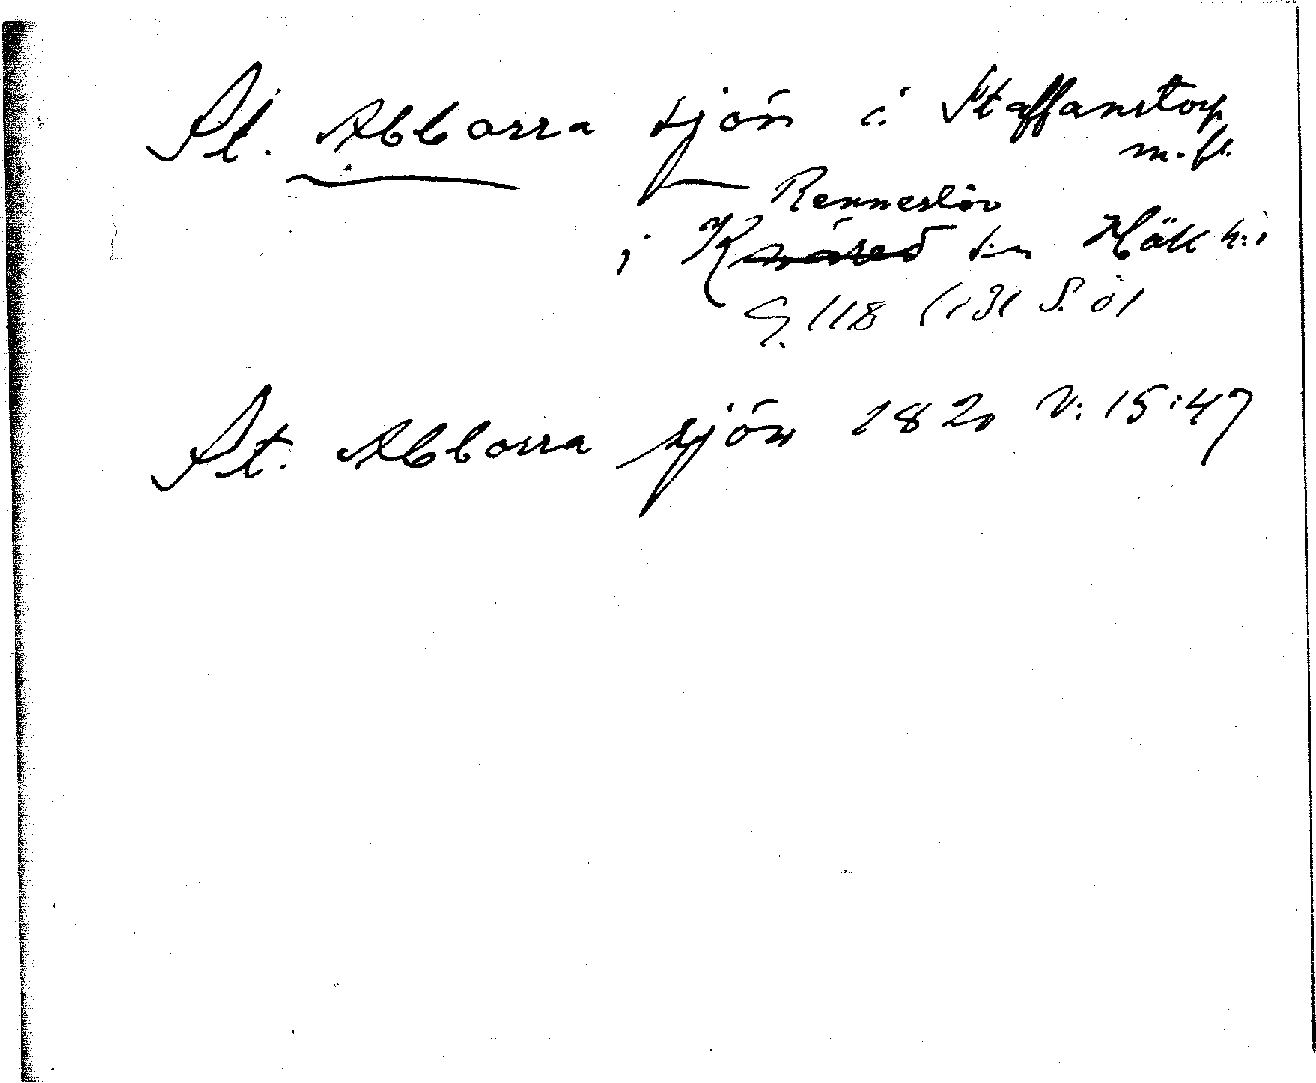 St. Abborra sjön i Staffanstorp
m.fl.
Renneslöv
i Knäred sn Hök h:i
G. 118 (131 S. öl
St. Abborra sjön 1820 V: 15:47